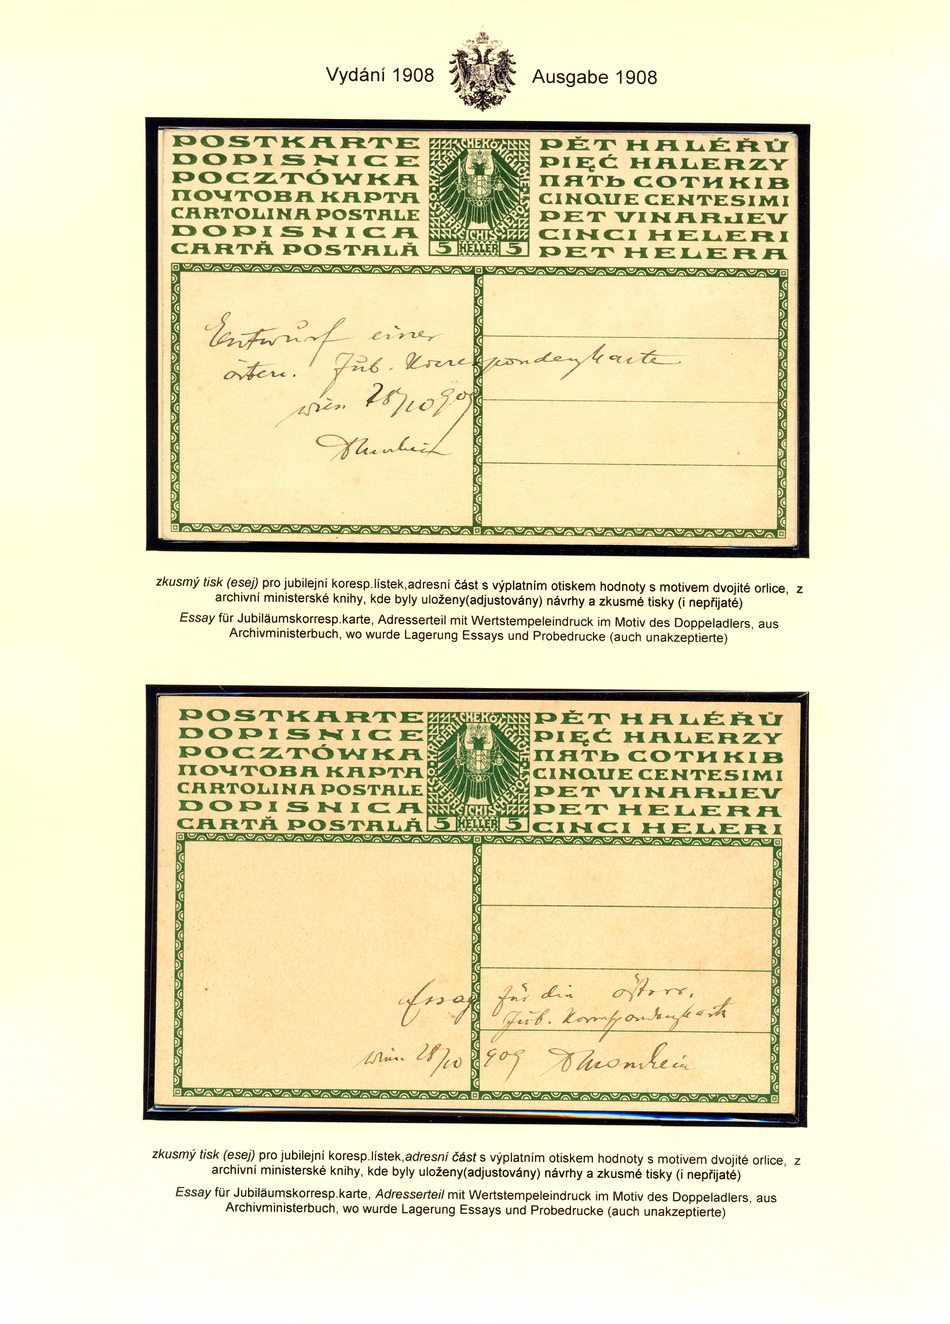 Vydání 1908 Ausgabe 1908
POSTKARTE
DOPISNICE
POCZTÓWKA
ПОЧТОВА КАРТА
CARTOLINA POSTALE
DOPISNICA
CARTĂ POSTALĂ
5 HELLER 5
PĚT HALÉŘŮ
PIĘĆ HALERZY
ПЯТЬ СОТИКІВ
CINQUE CENTESIMI
PET VINARJEV
CINCI HELERI
PET HELERA
Entwurf einer
österr. Jub. Korrespondenzkarte
Wien 28/10 909
zkusmý tisk (esej) pro jubilejní koresp.lístek,adresní část s výplatním otiskem hodnoty s motivem dvojité orlice, z
archivní ministerské knihy, kde byly uloženy(adjustovány) návrhy a zkusmé tisky (i nepřijaté)
Essay für Jubiläumskorresp.karte, Adresserteil mit Wertstempeleindruck im Motiv des Doppeladlers, aus
Archivministerbuch, wo wurde Lagerung Essays und Probedrucke (auch unakzeptierte)
POSTKARTE
DOPISNICE
POCZTÓWKA
ПОЧТОВА КАРТА
CARTOLINA POSTALE
DOPISNICA
CARTĂ POSTALĂ
5 HELLER 5
PĚT HALÉŘŮ
PIĘĆ HALERZY
ПЯТЬ СОТИКІВ
CINQUE CENTESIMI
PET VINARJEV
PET HELERA
CINCI HELERI
Essay für die österr.
Jub. Korrespondenzkarte
Wien 28/10 909
zkusmý tisk (esej) pro jubilejní koresp.lístek,adresní část s výplatním otiskem hodnoty s motivem dvojité orlice, z
archivní ministerské knihy, kde byly uloženy(adjustovány) návrhy a zkusmé tisky (i nepřijaté)
Essay für Jubiläumskorresp.karte, Adresserteil mit Wertstempeleindruck im Motiv des Doppeladlers, aus
Archivministerbuch, wo wurde Lagerung Essays und Probedrucke (auch unakzeptierte)